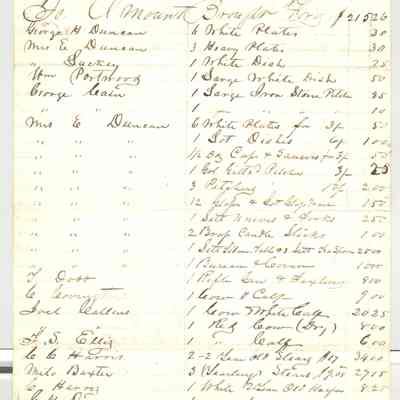 To Amount Brought Forw $215 20
George H Duncan 6 White Plates 30
Mrs E Duncan 3 Heavy Plates 30
" Luckey 1 White Dish 25
Wm Portwood 1 Large White Dish 50
George Cain 1 Large Iron Stone 85
" " 1 " " 10
Mrs E Duncan 6 White Plates for 3p 50
" " " 1 Lot Dishes 6p 100
" " " ½ Dz Cups & Saucers for 3p 50
" " " 1 Pitcher 3p 25
" " " 3 Pitchers 10p 200
" " " 12 150
" " " 1 Sett Knives & Forks 250
" " " 2 Brass Candle Sticks 100
" " " 1 Sett Silver 2500
" " " 1 Bureau & 100
T Dott 1 Rifle Gun & 800
C Covington 1 Cow & Calf 900
Joel 1 Cow White Calf 2025
" " 1 Red Cow (Dry) 800
F. S. Ellis 1 " Calf 600
C C Harris 2-2 Year Old Steers $17 3400
Milo Baxter 3 (Yearling) Steers 2715
C Harris 1 White 2 Year Old Heifer 825